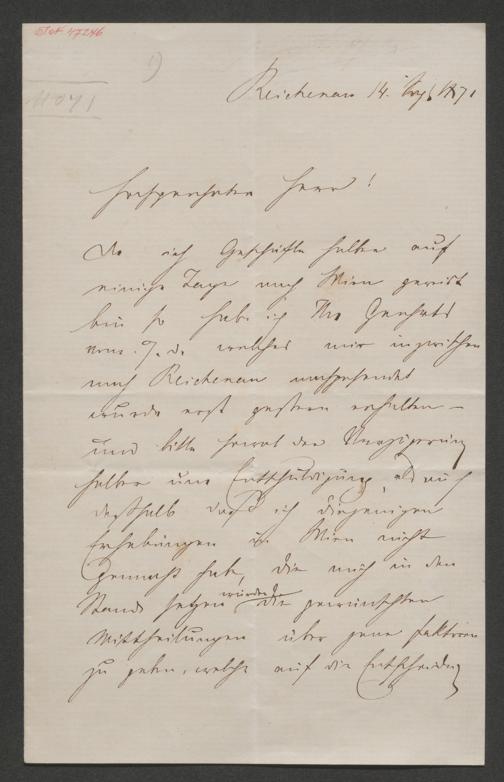 Reichenau 14. Sept 1871
Hochgeehrter Herr!
Da ich Geschäfte halber auf
einige Tage nach Wien gereist
bin so habe ich Ihr Geehrtes
vom 7. d. welches mir inzwischen
nach Reichenau nachgesendet
wurde erst gestern erhalten –
und bitte sowol der Verzögerung
halber um Entschuldigung, als auch
deßhalb daß ich diejenigen
Erhebungen in Wien nicht
gemacht habe, die mich in den
Stand setzen würden die gewünschten
Mittheilungen über jene Faktoren
zu geben, welche auf die Entscheidung